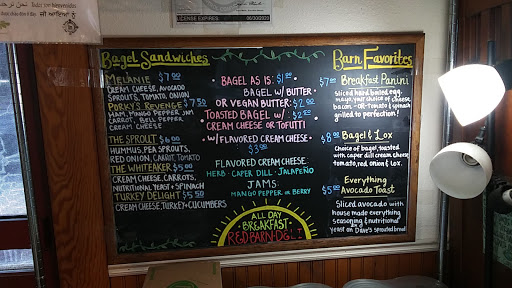 LICENSE EXPIRES: 06/30/2020
Bagel Sandwiches
MELANIE $7.00
CREAM CHEESE, AVOCADO
SPROUTS, TOMATO, ONION
PORKY'S REVENGE $7.50
HAM, MANGO PEPPER JAM
CARROT, BELL PEPPER
CREAM CHEESE
THE SPROUT $6.00
HUMMUS, PEA SPROUTS,
RED ONION, CARROT, TOMATO
THE WHITEAKER $5.00
CREAM CHEESE, CARROTS,
NUTRITIONAL YEAST + SPINACH
TURKEY DELIGHT $5.50
CREAM CHEESE, TURKEY + CUCUMBERS
BAGEL AS IS: $1.00
BAGEL W/ BUTTER
OR VEGAN BUTTER: $2.00
TOASTED BAGEL W/: $2.50
CREAM CHEESE OR TOFUTTI
W/ FLAVORED CREAM CHEESE
$3.00
FLAVORED CREAM CHEESE
HERB · CAPER DILL · JALAPEÑO
JAMS
MANGO PEPPER OR BERRY
ALL DAY
BREAKFAST
RED BARN DELI
Barn Favorites
$7.00 Breakfast Panini
Sliced hard boiled egg,
mayo, your choice of cheese,
bacon - OR - tomato & spinach
grilled to perfection!
$8.00 Bagel & Lox
Choice of bagel, toasted
with caper dill cream cheese,
tomato, red onion & lox.
Everything
$5.00 Avocado Toast
Sliced avocado with
house made everything
seasoning & nutritional
yeast on Dave's sprouted bread.